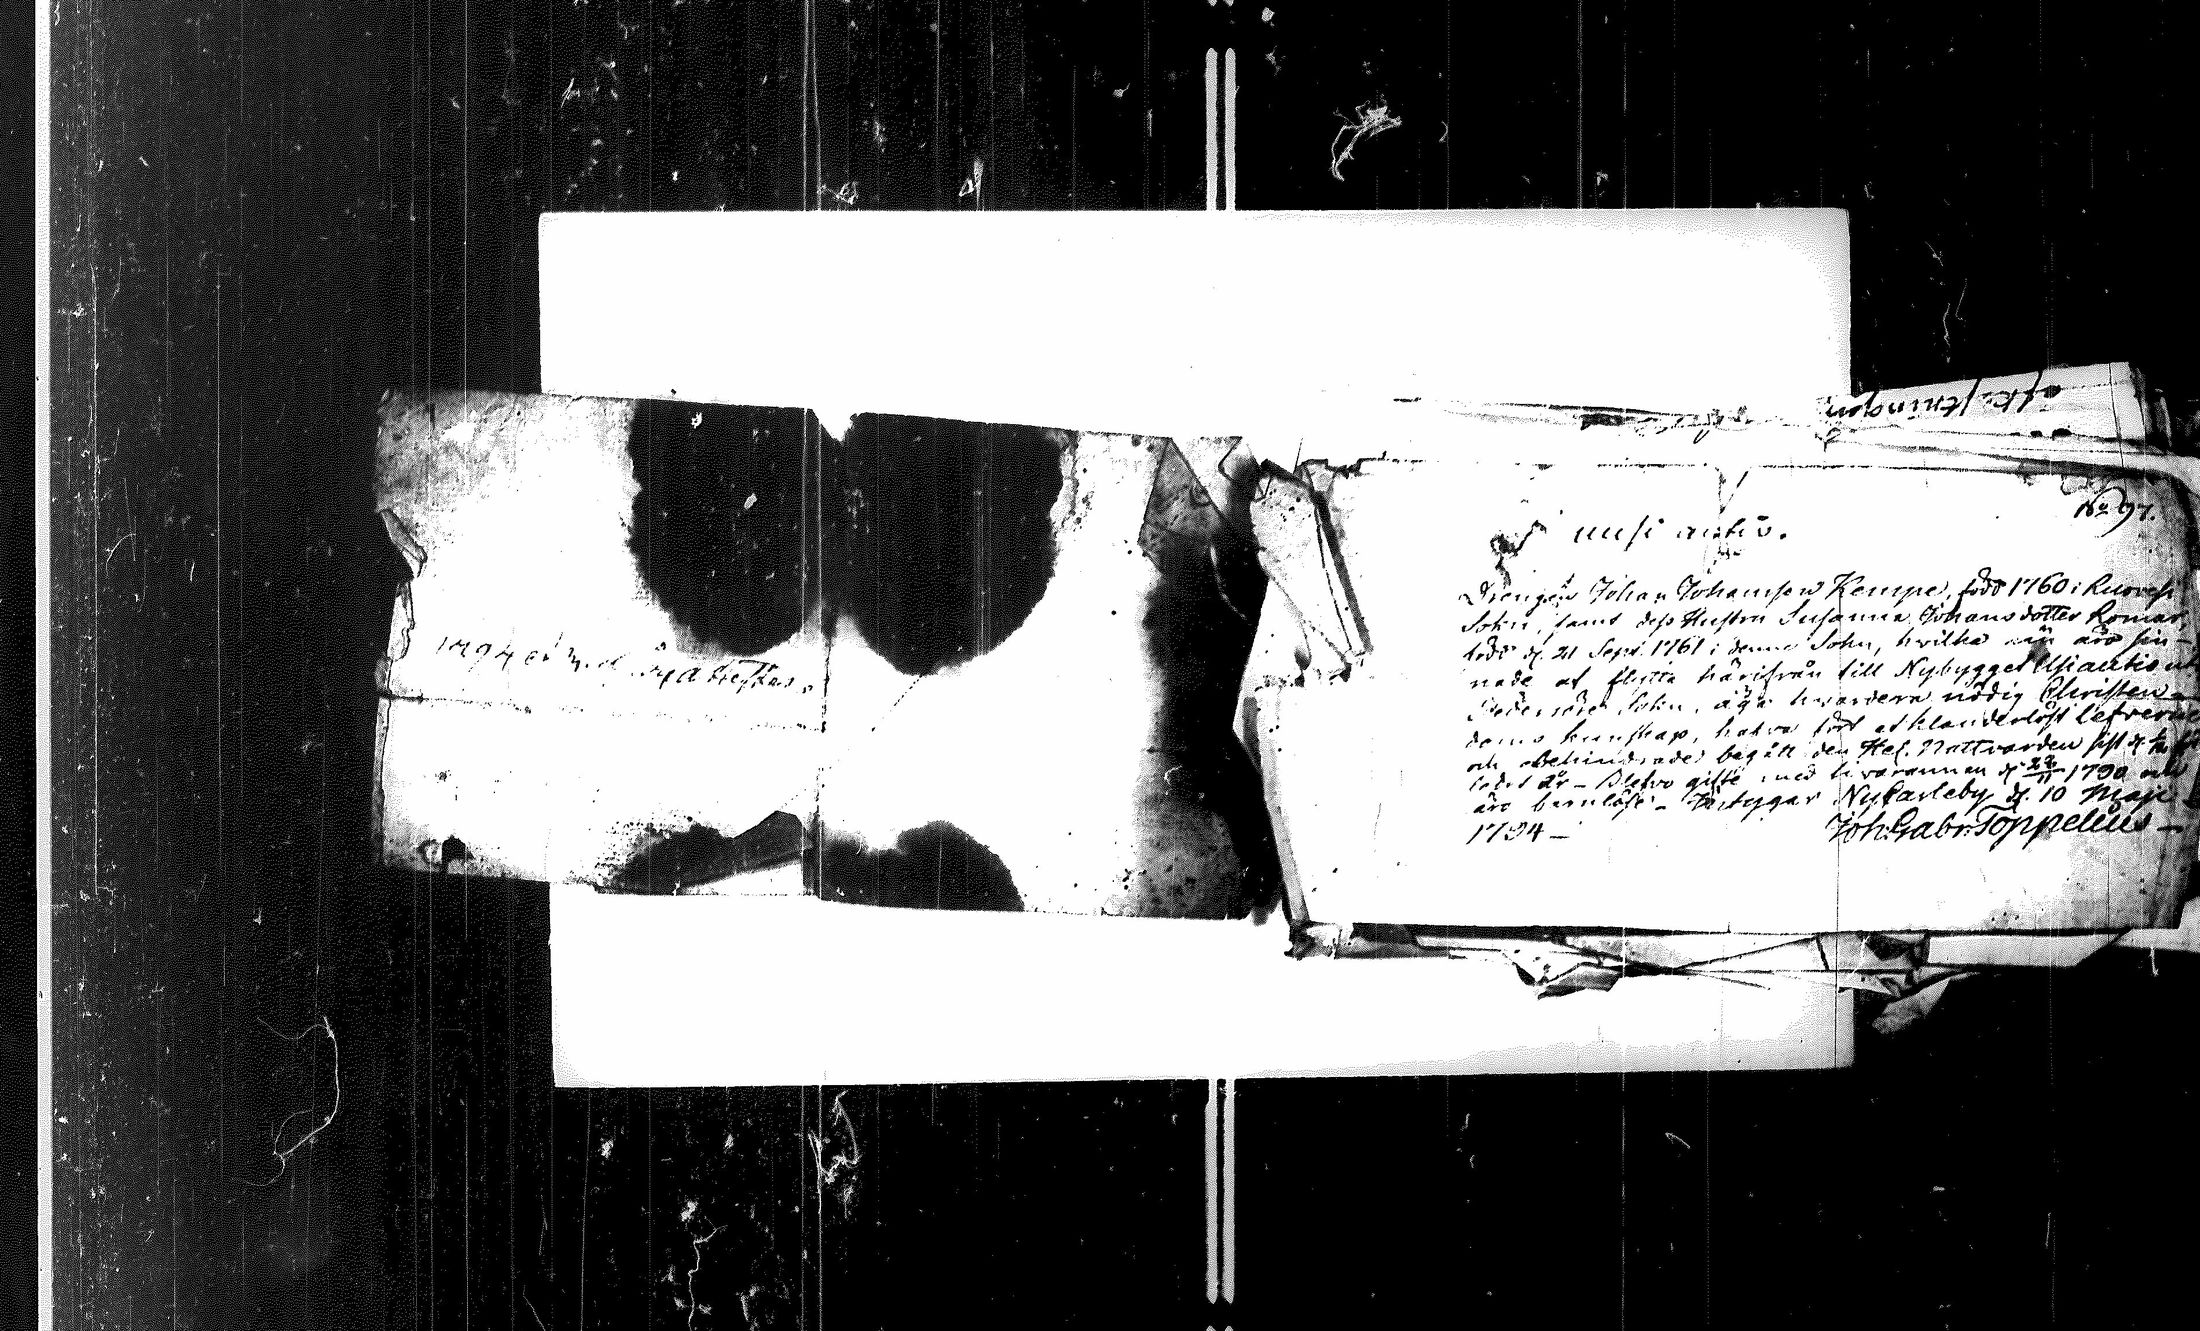 1794 års
afskriftningar
No 97.
uusi autio.
Drengen Johan Johansson Kempe, född 1760 i Ruovesi
Sokn, samt dess Hustru Susanna Johansdotter Romar,
född d. 21 Sept. 1761 i denna Sokn, hvilka nu äro sin-
nade at flytta härifrån till Nybygget Usiautio uti
Pedersöre Sokn, äga hvardera nödig Christen-
doms kunskap, hafva fört et klanderlöst lefverne
och obehindrade begått den Hel. Nattvarden sist d.
år - Blefvo gifte med hvarannan d. 22/11 1790 och
äro barnlöse - Betygar Nykarleby d. 10 Maji
1794 - Joh: Gabr: Toppelius -